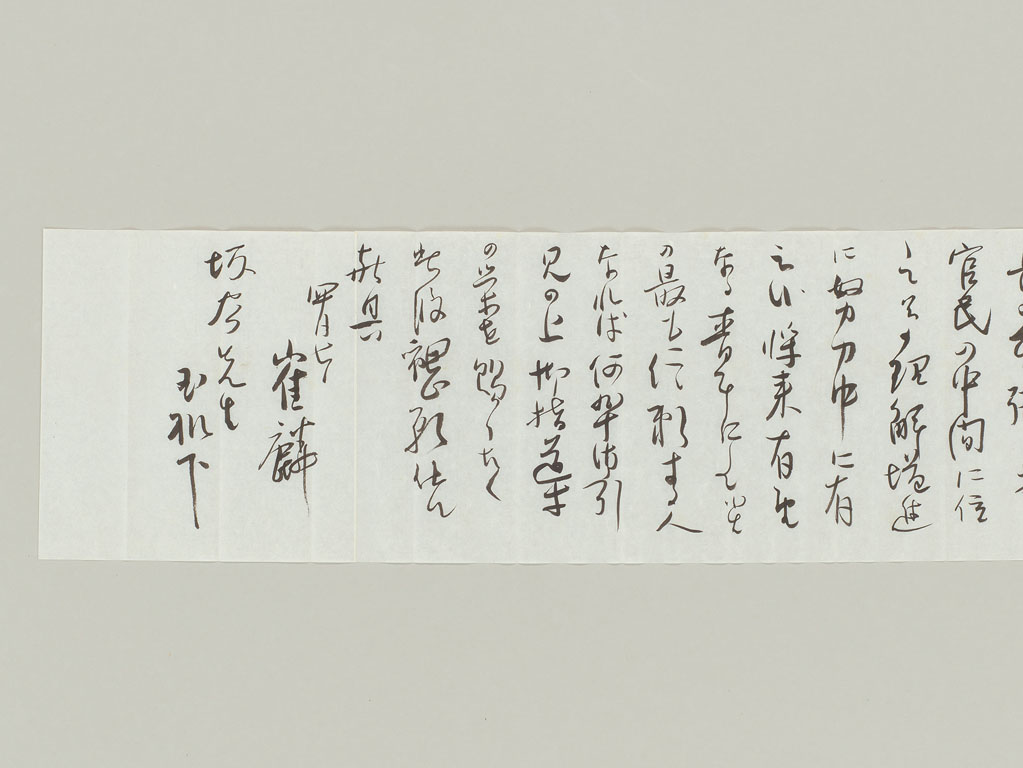 官民の中間に位
して其の理解増進
に努力中に有
之候 将来有望
なる青年にして小生
の最も信頼する人
なれば何卒御引
見の上 御指導
の栄を賜り度く
此段 得貴意
敬具
四月七日
崔麟
坂谷先生
玉机下